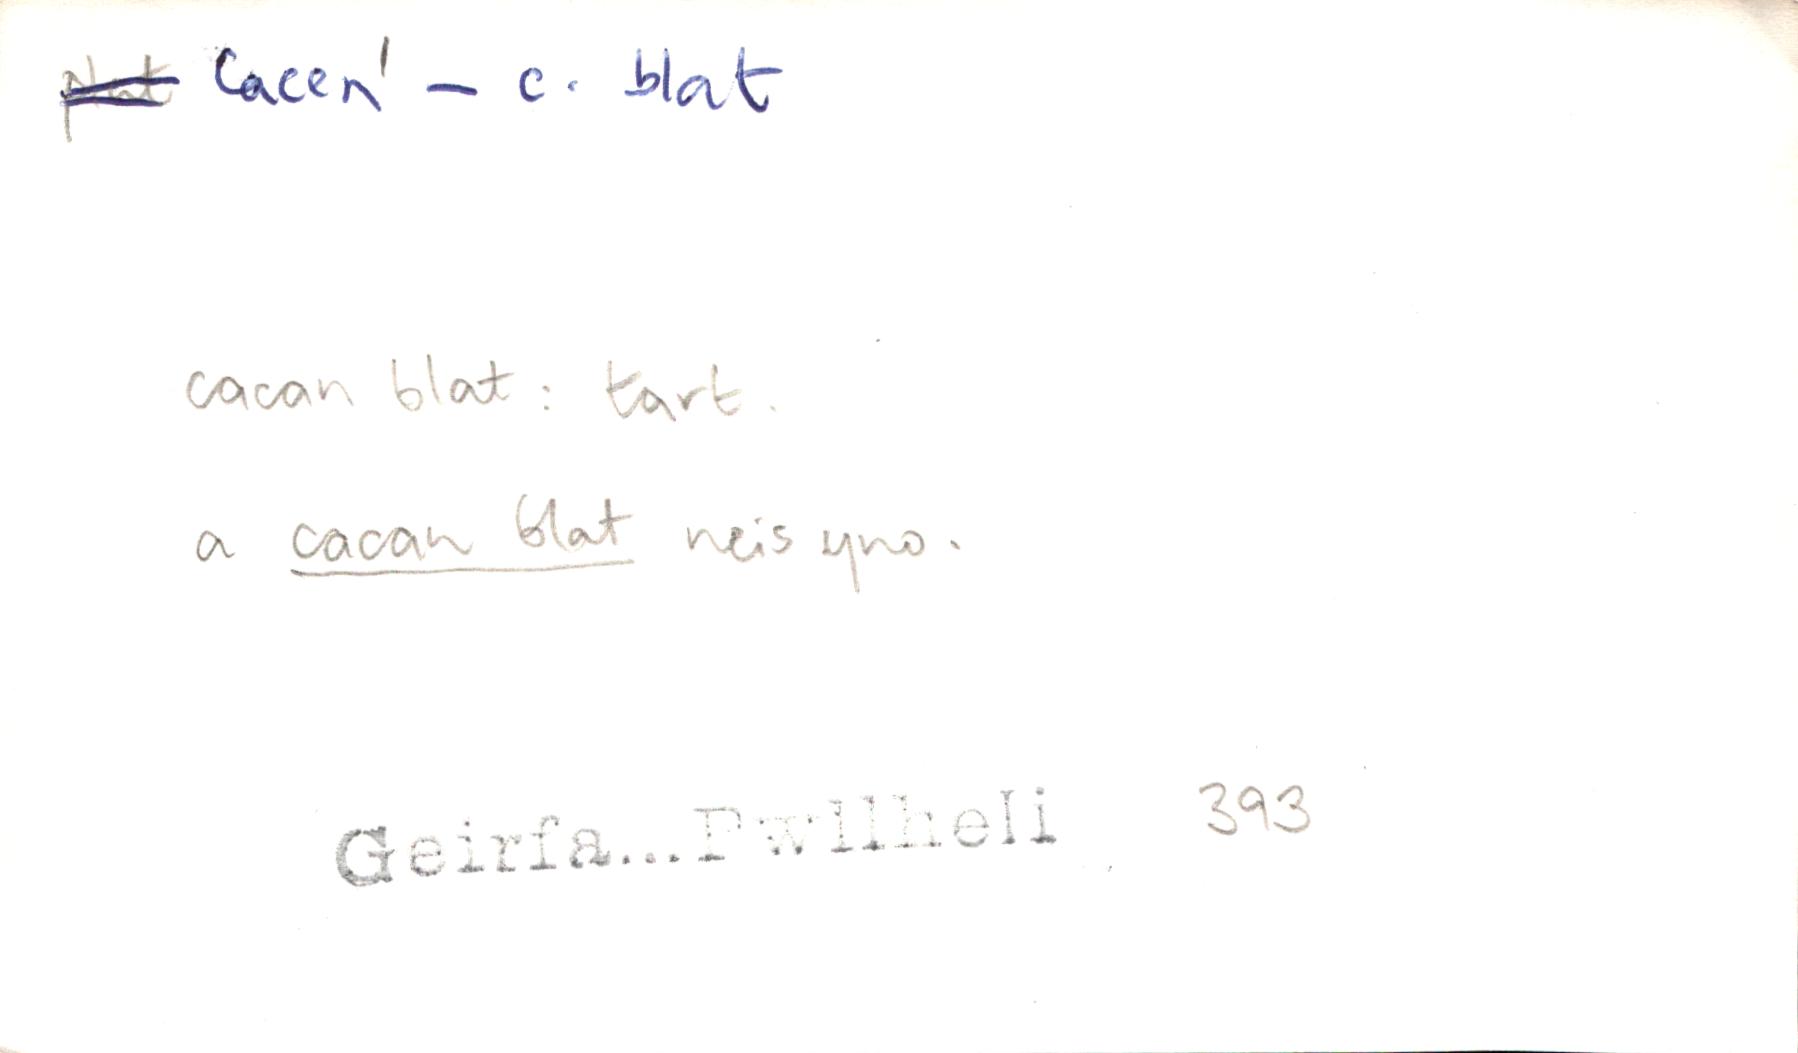 plat cacen' – c. blat
cacan blat: tart.
a cacan blat neis yno.
Geirfa...Pwllheli 393